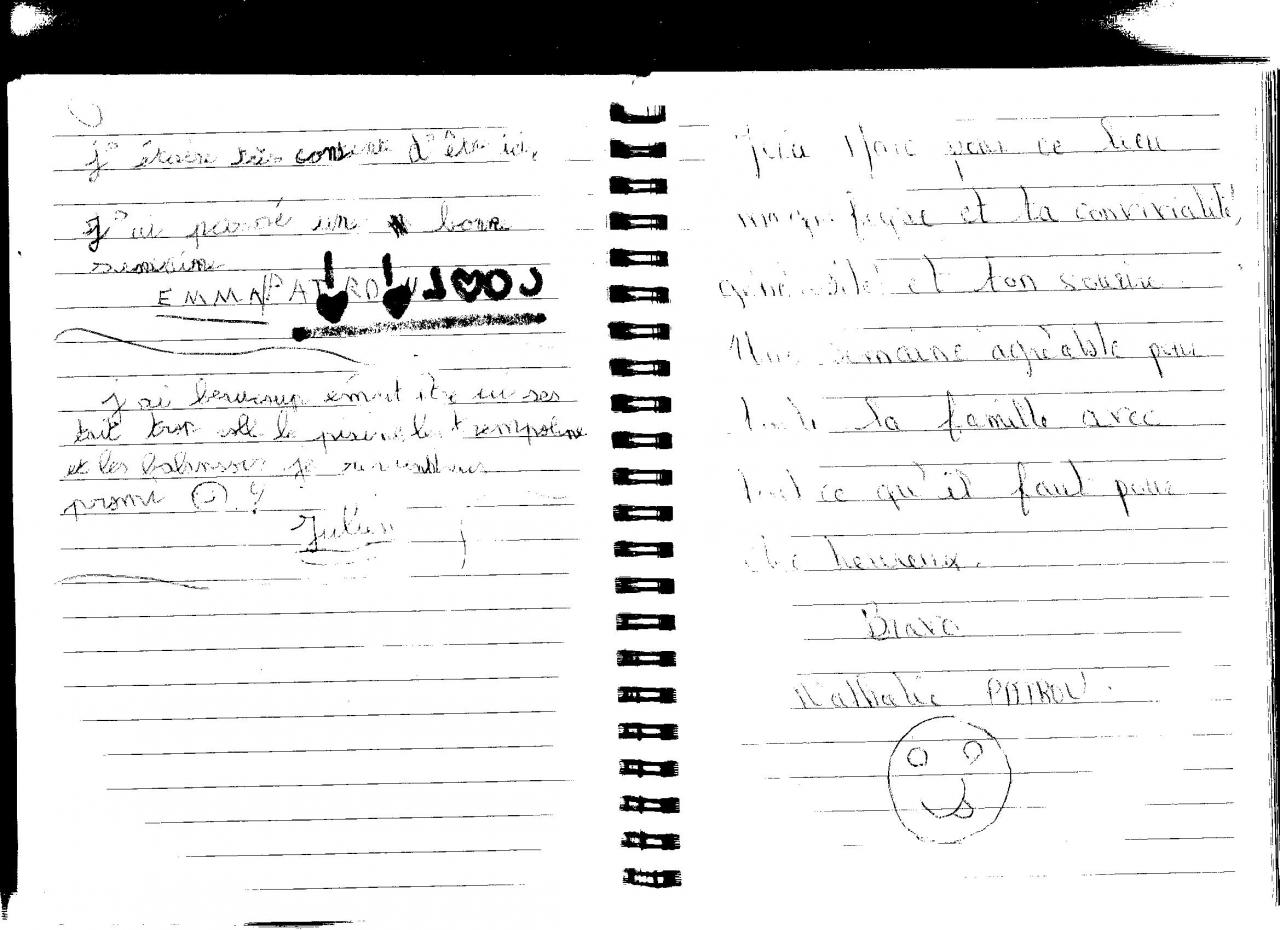 J' étaien très contente d'être ici.
J'ai passé une bonne
semaine
EMMA PATROU COOL
J'ai beaucoup émait itre ici ses
trop la le trempoline
et les balansoir je
promi
Julien
Marc pour ce lieu
magnifique et ta convivialité,
générosité et ton sourire.
Une semaine agréable pour
toute la famille avec
tout ce qu'il faut pour
être heureux.
Bravo
Nathalie PATROU.